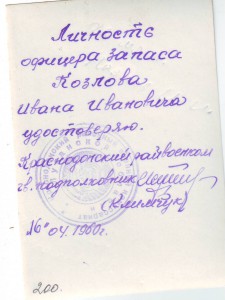 Личность
офицера запаса
Козлова
Ивана Ивановича
удостоверяю.
Краснодонский райвоенком
гв. подполковник
(Климчук)
"16" 04. 1960г.
200.